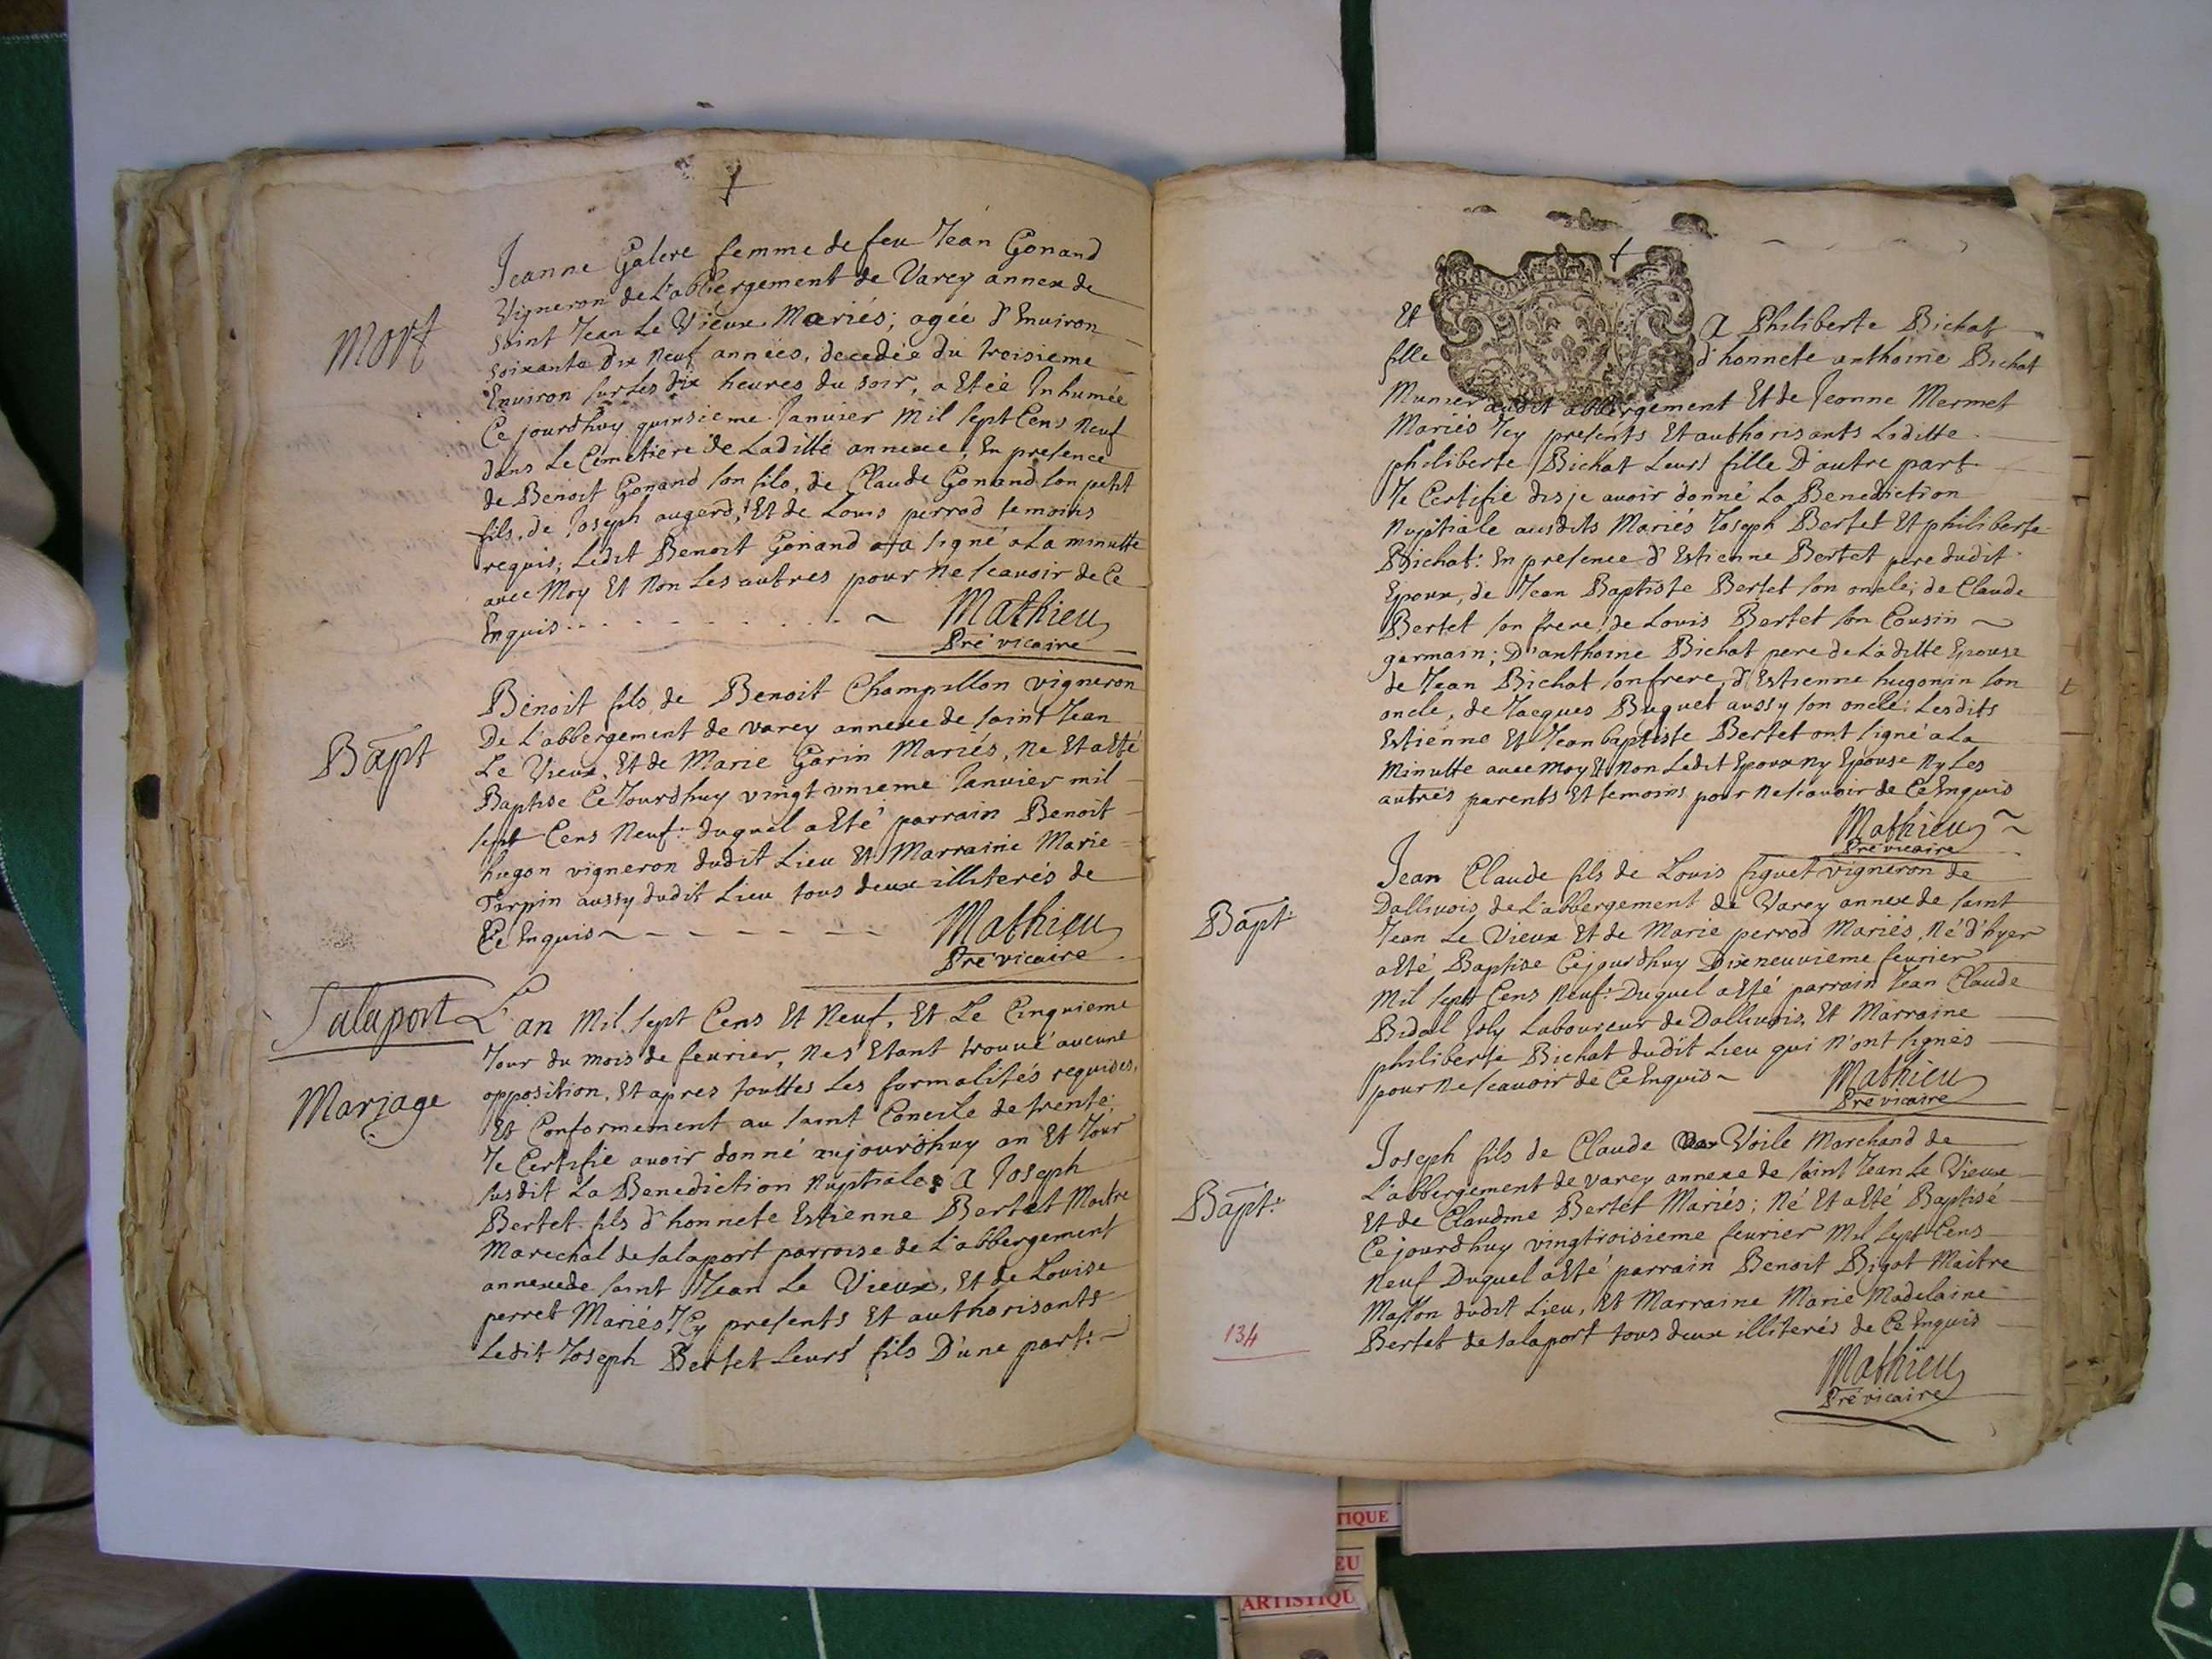 Mort
Jeanne Galere femme de feu Jean Gonand
Vigneron de L'abbergement de Varey annex de
Saint Jean Le Vieux Mariés; agée d'Environ
soixante Dix Neuf années, decedée du troisieme
Environ sur Les dix heures du soir, a Etée Inhumée
Ce jourdhuy quinsieme Janvier Mil sept Cens Neuf
dans Le Cimetiere de Laditte annexe, En presence
de Benoit Gonand son fils, de Claude Gonand son petit
fils, de Joseph augerd, Et de Louis perrod temoins
requis; Ledit Benoit Gonand a signé a La minutte
avec Moy Et Non Les autres pour ne scavoir de Ce
Enquis
Mathieu
Pre vicaire
Bapt
Benoit fils de Benoit Champillon vigneron
De L'abbergement de varey annexe de saint Jean
Le Vieux, Et de Marie Garin Mariés, Ne Et a Eté
Baptise Ce Jourdhuy vingt unieme Janvier mil
sept Cens Neuf: duquel a Eté parrain Benoit
hugon vigneron dudit Lieu Et Marraine Marie
Tirpin aussy dudit Lieu tous deux illiterés de
Ce Enquis
Mathieu
Pre vicaire
Salaport
Mariage
L'an Mil sept Cens Et Neuf, Et Le Cinquieme
Jour du mois de fevrier, Nes Etant trouvé aucune
opposition, Et apres touttes Les formalités requises,
Et Conformement au saint Concile de trente;
Je Certifie avoir donné aujourdhuy an Et Jour
susdit La Benediction Nuptiale a Joseph
Bertet fils d'honnete Estienne Bertet Maitre
Marechal de salaport parroise de L'abbergement
annexe de saint Jean Le Vieux, Et de Louise
perret Mariés Icy presents Et authorisants
Ledit Joseph Bertet Leurs fils D'une part:
Et A Philiberte Bichat
fille d'honnete anthoine Bichat
Munier dudit abbergement Et de Jeanne Mermet
Mariés Icy presents Et authorisants Laditte
philiberte Bichat Leurs fille D'autre part
Je Certifie disje avoir donné La Benediction
Nuptiale ausdits Mariés Joseph Bertet Et philiberte
Bichat: En presence d'Estienne Bertet pere dudit
Epoux, de Jean Baptiste Bertet son oncle, de Claude
Bertet son frere, de Louis Bertet son Cousin
germain; D'anthoine Bichat pere de Laditte Epouse
de Jean Bichat son frere, d'Estienne hugonin son
oncle, de Jacques Buguet aussy son oncle: Lesdits
Estienne Et Jean baptiste Bertet ont signé a La
Minutte avec moy Et Non Ledit Epoux ny Epouse Ny Les
autres parents Et temoins pour ne scavoir de Ce Enquis
Mathieu
Pre vicaire
Bapt:
Jean Claude fils de Louis figuet vigneron de
Dallivois de L'abbergement de Varey annexe de saint
Jean Le Vieux Et de Marie perrod Mariés, Né d'hyer
a Eté Baptise Cejourdhuy Dix neuvieme fevrier
Mil sept Cens Neuf: Duquel a Eté parrain Jean Claude
Bidal Joly Laboureur de Dallivois, Et Marraine
philiberte Bichat dudit Lieu qui n'ont signés
pour ne scavoir de Ce Enquis
Mathieu
Pre vicaire
Bapt:
Joseph fils de Claude Voile Marchand de
L'abbergement de varey annexe de saint Jean Le Vieux
Et de Claudine Bertet Mariés; Né Et a Eté Baptisé
Cejourdhuy vingtroisieme fevrier Mil sept Cens
Neuf Duquel a Eté parrain Benoit Bigot Maitre
Masson dudit Lieu, Et Marraine Marie Madelaine
Bertet de salaport tous deux illiterés de Ce Enquis
134
Mathieu
Pre vicaire
TIQUE
EU
ARTISTIQU